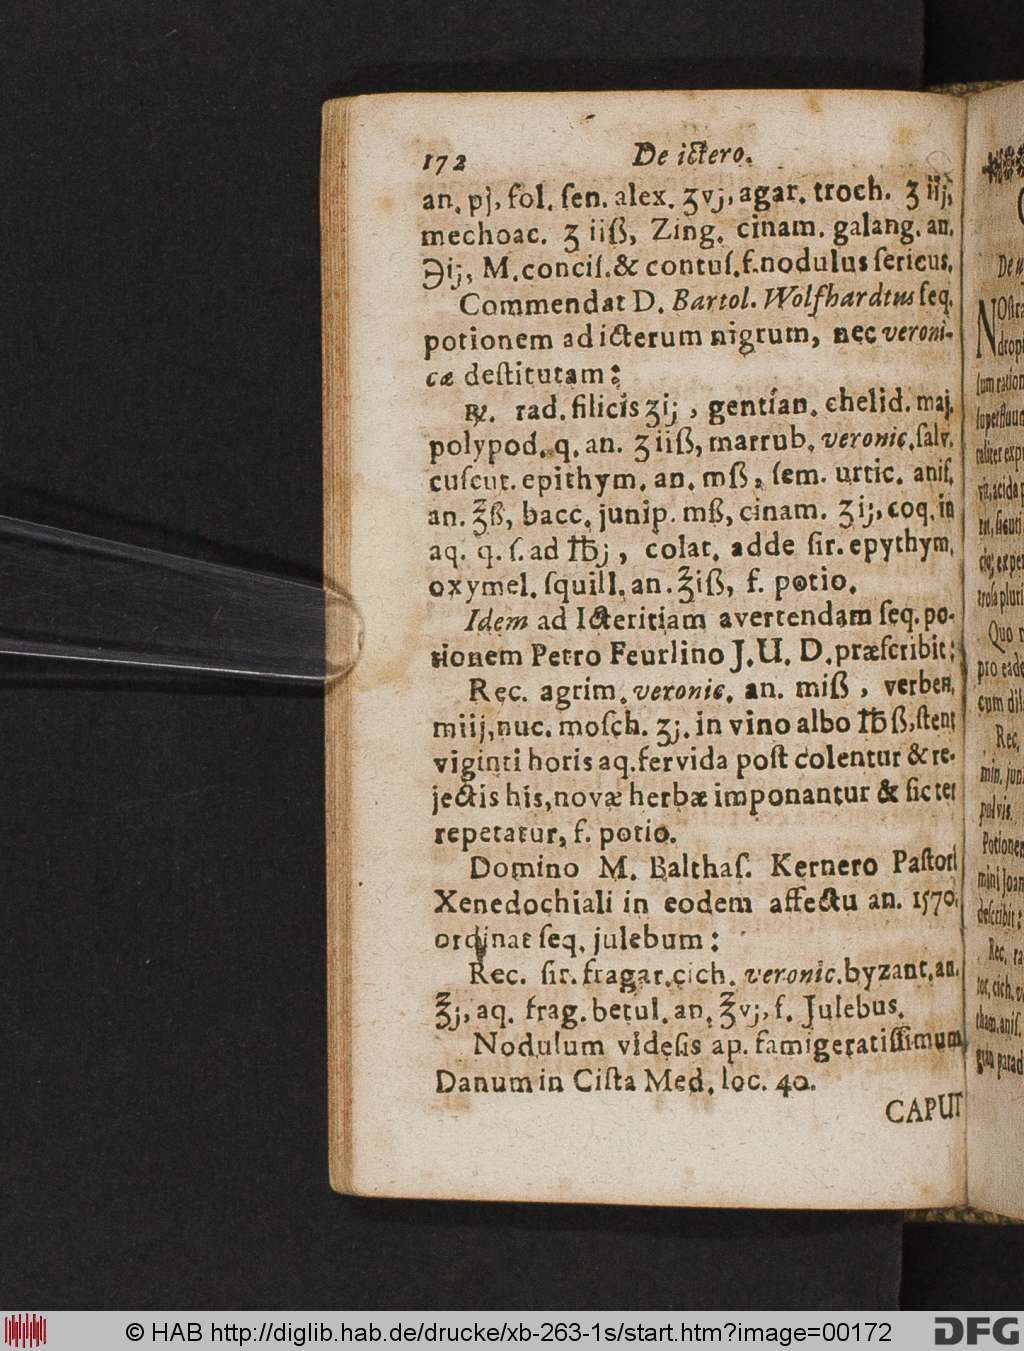 172 De ictero.
an. pj, fol. ſen. alex. ʒvj, agar. troch. ʒ iij,
mechoac. ʒ iiß, Zing. cinam. galang. an.
℈ij, M. conciſ. & contuſ. f. nodulus ſericus.
Commendat D. Bartol. Wolfhardtus ſeq.
potionem ad icterum nigrum, nec veroni-
cæ deſtitutam:
℞. rad. filicis ʒij, gentian. chelid. maj.
polypod. q. an. ʒiiß, marrub. veronic. ſalv.
cuſcut. epithym. an. mß, ſem. urtic. aniſ.
an. ℥ß, bacc. junip. mß, cinam. ʒij, coq. in
aq. q. ſ. ad ℔j, colat. adde ſir. epythym.
oxymel. ſquill. an. ℥iß, f. potio.
Idem ad Icteritiam avertendam ſeq. po-
tionem Petro Feurlino J. U. D. præſcribit:
Rec. agrim. veronic. an. miß, verben.
miij, nuc. moſch. ʒj. in vino albo ℔ß, ſtent
viginti horis aq. fervida poſt colentur & re-
jectis his, novæ herbæ imponantur & ſic ter
repetatur, f. potio.
Domino M. Balthaſ. Kernero Paſtori
Xenedochiali in eodem affectu an. 1570.
ordinat ſeq. julebum:
Rec. ſir. fragar. cich. veronic. byzant. an.
℥j, aq. frag. betul. an. ℥vj, f. Julebus.
Nodulum videſis ap. famigeratiſſimum
Danum in Ciſta Med. loc. 40.
CAPUT
© HAB http://diglib.hab.de/drucke/xb-263-1s/start.htm?image=00172
DFG